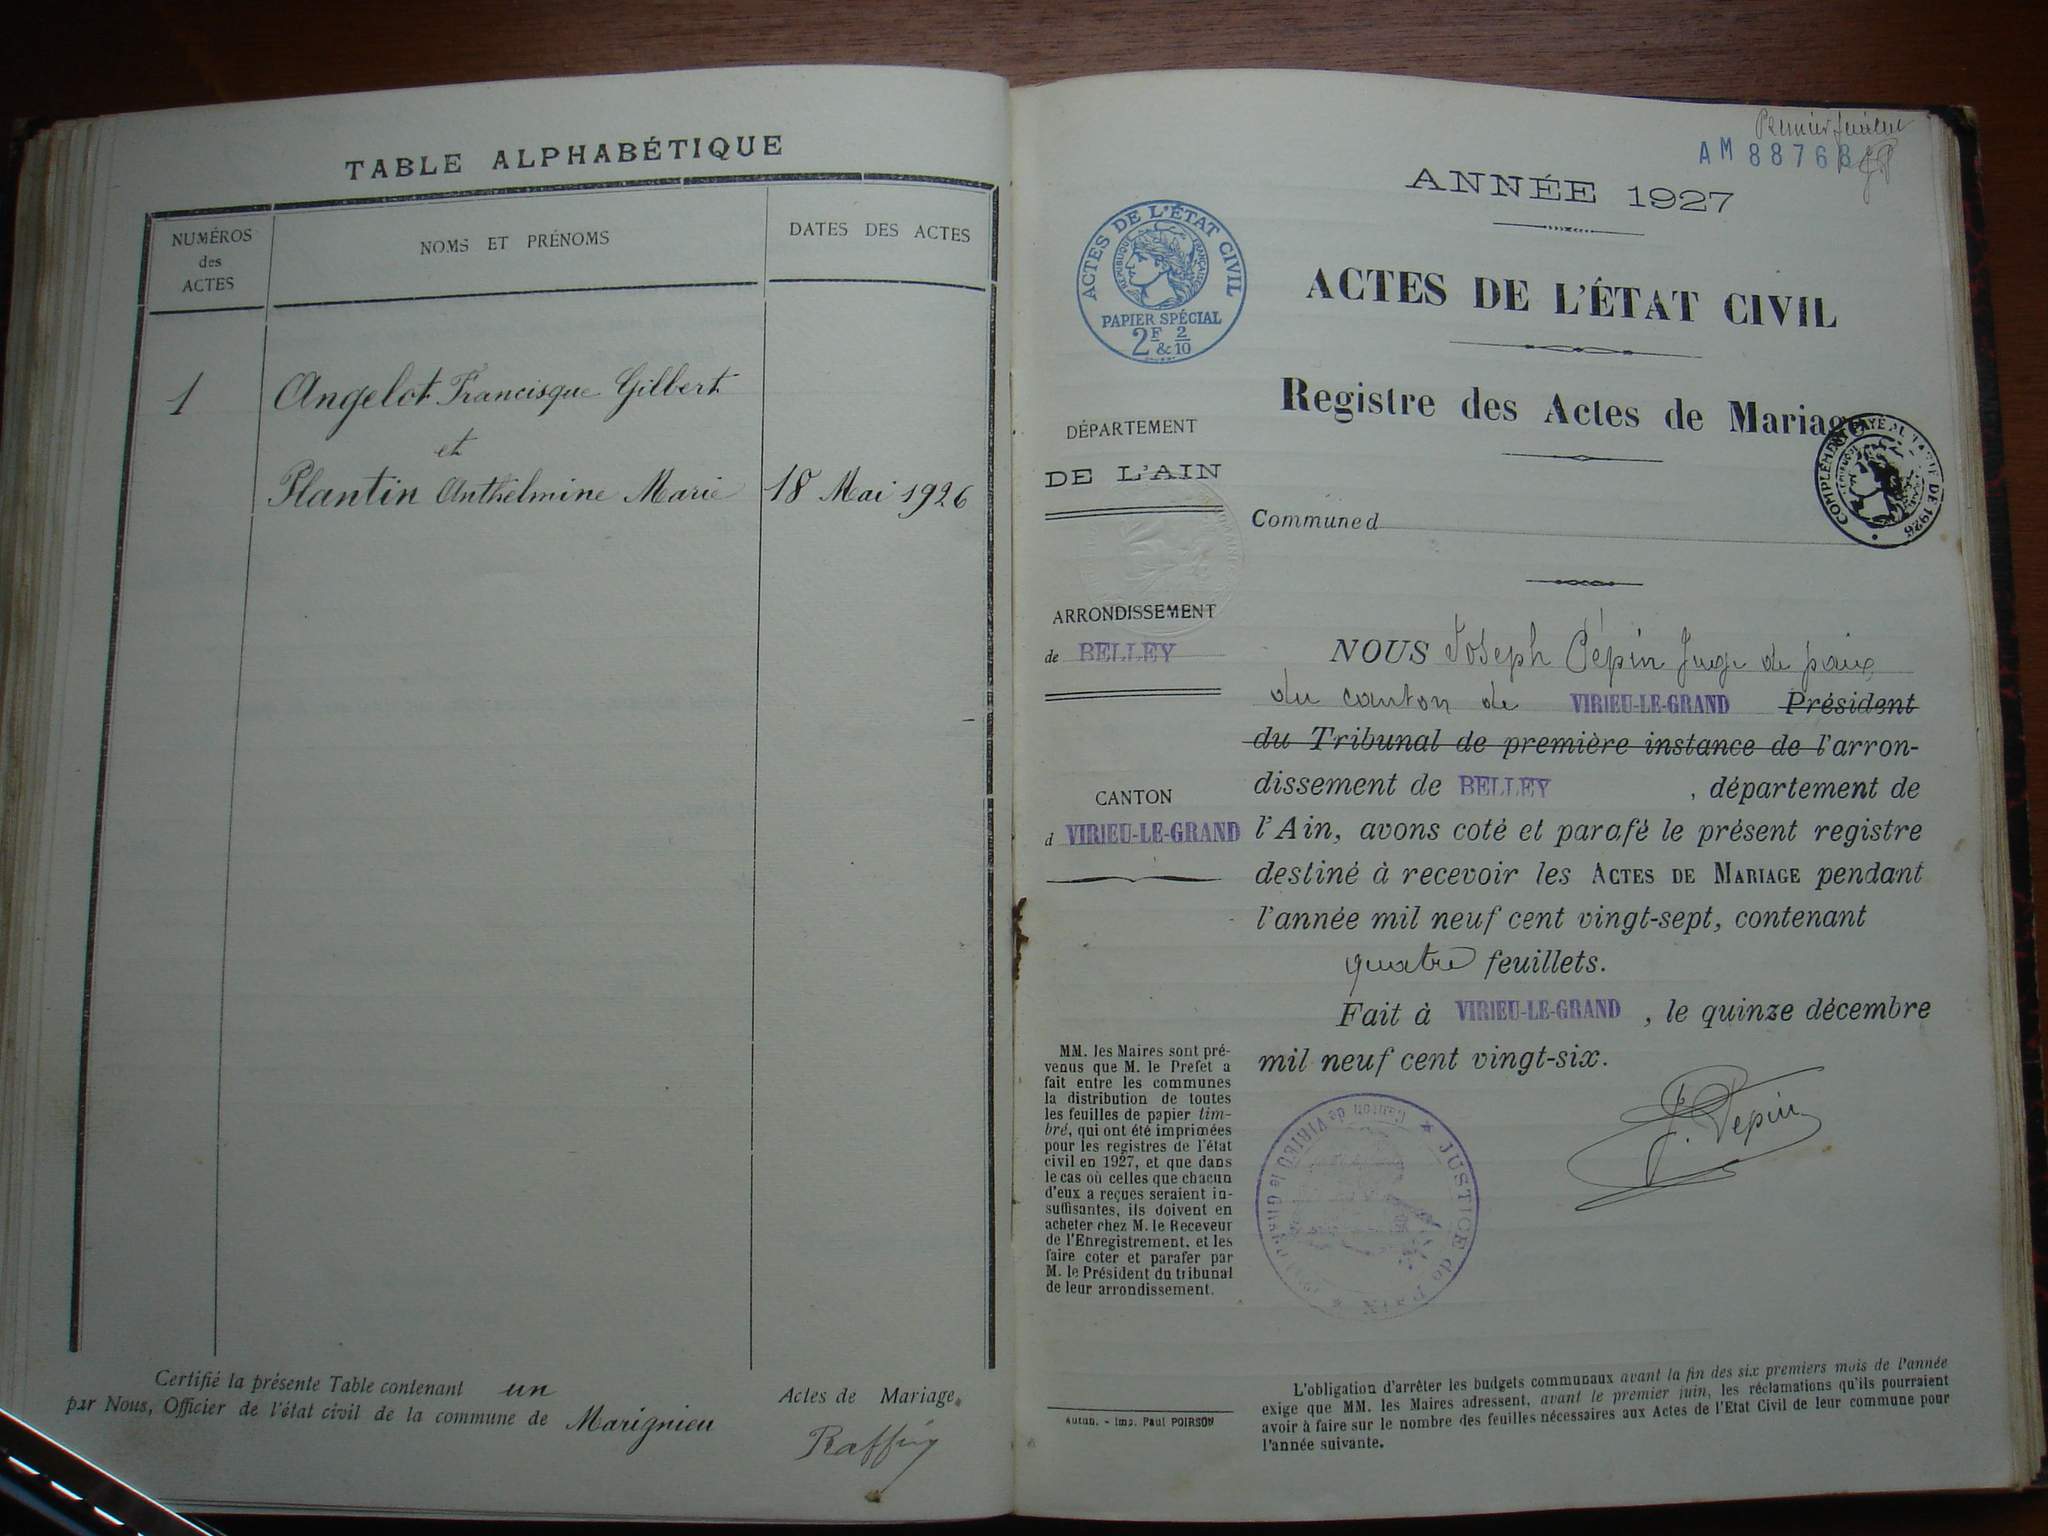 TABLE ALPHABÉTIQUE
NUMÉROS
des
ACTES
NOMS ET PRÉNOMS
DATES DES ACTES
1
Angelot Francisque Gilbert
et
Plantin Anthelmine Marie
18 Mai 1926
Certifié la présente Table contenant un Actes de Mariage.
par Nous, Officier de l'état civil de la commune de Marignieu
Premier feuillet
AM 88768
ANNÉE 1927
ACTES DE L'ÉTAT CIVIL
RÉPUBLIQUE FRANÇAISE
PAPIER SPÉCIAL
2F & 2/10
ACTES DE L'ÉTAT CIVIL
Registre des Actes de Mariage
COMPLÉMENT PAYÉ AU TARIF DE 1926
DÉPARTEMENT
DE L'AIN
Commune d
ARRONDISSEMENT
de BELLEY
CANTON
d VIRIEU-LE-GRAND
NOUS Joseph Pépin Juge de paix
du canton de VIRIEU-LE-GRAND Président
du Tribunal de première instance de l'arron-
dissement de BELLEY , département de
l'Ain, avons coté et parafé le présent registre
destiné à recevoir les ACTES DE MARIAGE pendant
l'année mil neuf cent vingt-sept, contenant
quatre feuillets.
Fait à VIRIEU-LE-GRAND , le quinze décembre
mil neuf cent vingt-six.
J. Pepin
JUSTICE de PAIX
Canton de VIRIEU le Grand
MM. les Maires sont pré-
venus que M. le Préfet a
fait entre les communes
la distribution de toutes
les feuilles de papier tim-
bré, qui ont été imprimées
pour les registres de l'état
civil en 1927, et que dans
le cas où celles que chacun
d'eux a reçues seraient in-
suffisantes, ils doivent en
acheter chez M. le Receveur
de l'Enregistrement, et les
faire coter et parafer par
M. le Président du tribunal
de leur arrondissement.
Autun. - Imp. Paul POIRSON
L'obligation d'arrêter les budgets communaux avant la fin des six premiers mois de l'année
exige que MM. les Maires adressent, avant le premier juin, les réclamations qu'ils pourraient
avoir à faire sur le nombre des feuilles nécessaires aux Actes de l'Etat Civil de leur commune pour
l'année suivante.